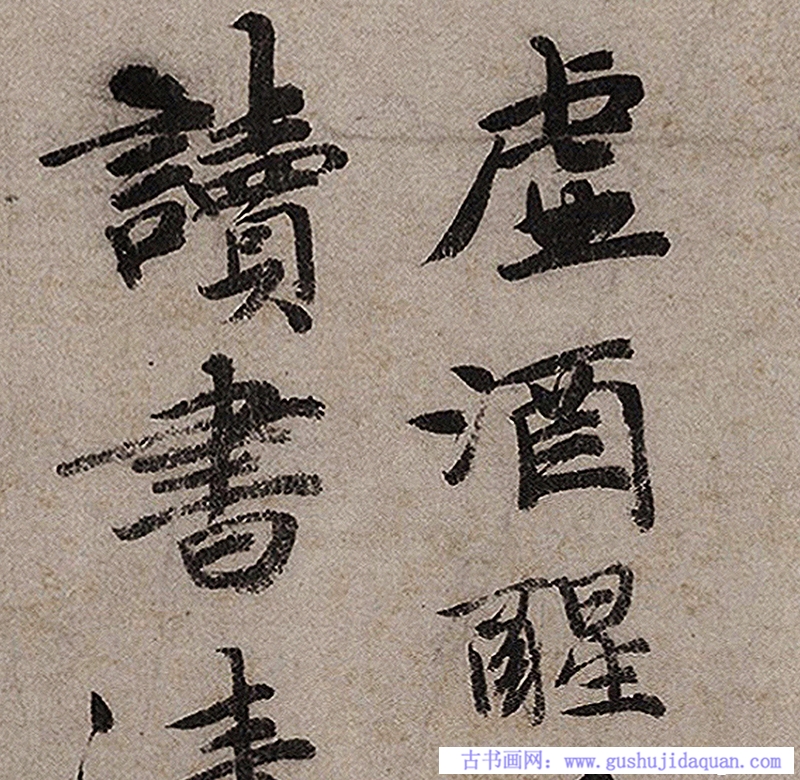 虚酒醒
讀書清
古书画网：www.gushujidaquan.com